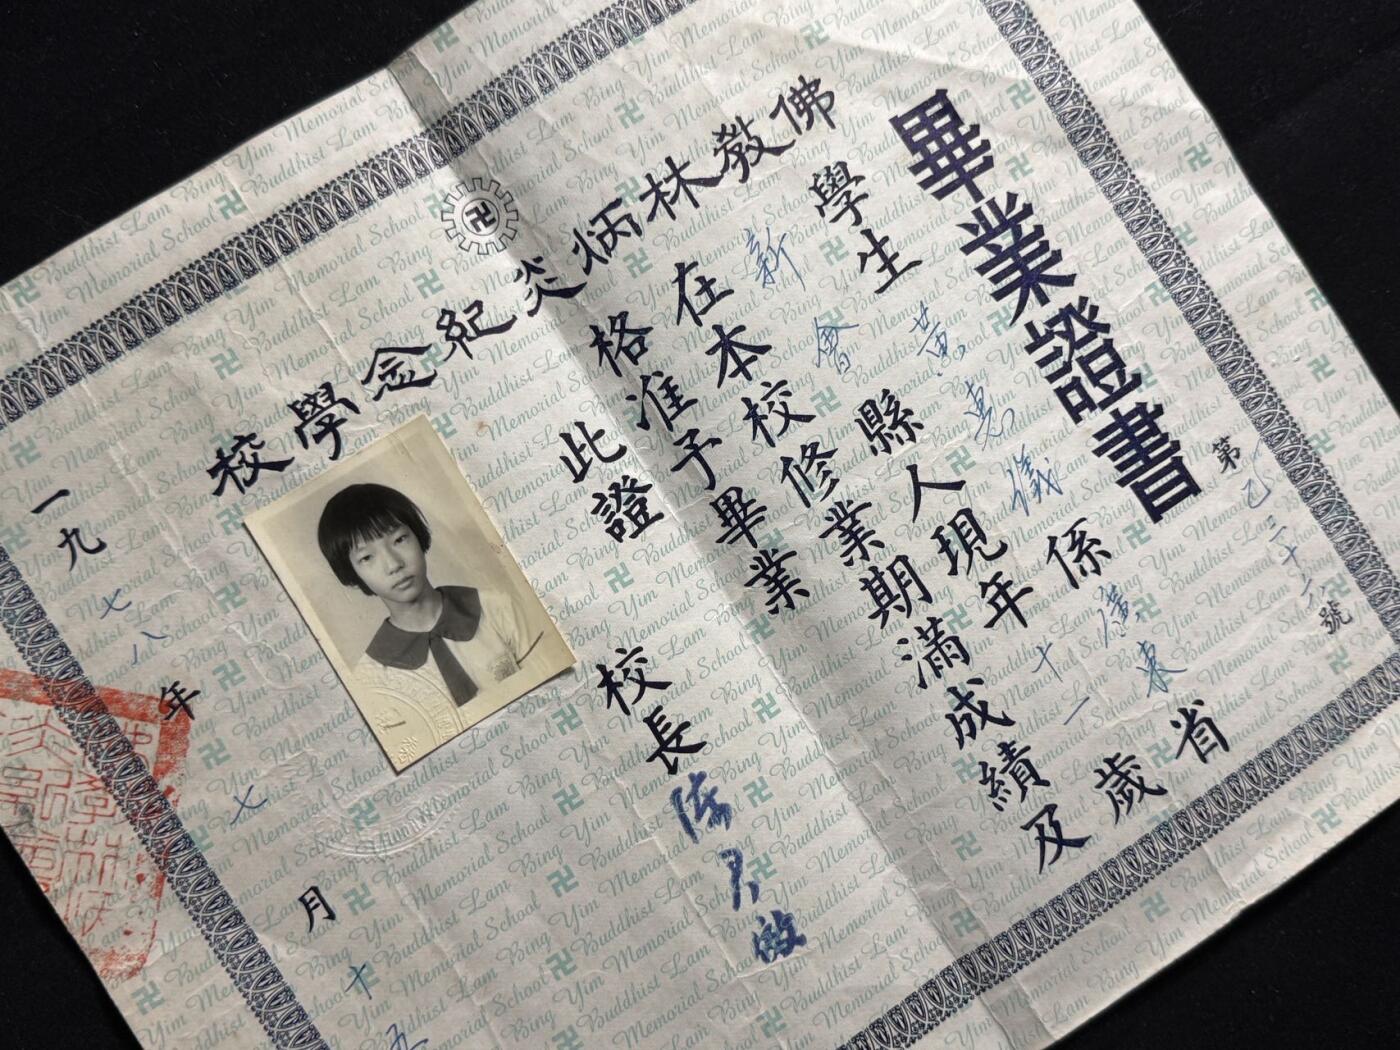 畢業證書
第三十六號
佛教林炳炎紀念學校
學生黃惠儀係廣東省
新會縣人現年十一歲
在本校修業期滿成績及
格准予畢業
此證
校長
一九七八年七月十五
Buddhist Lam Bing Yim Memorial School